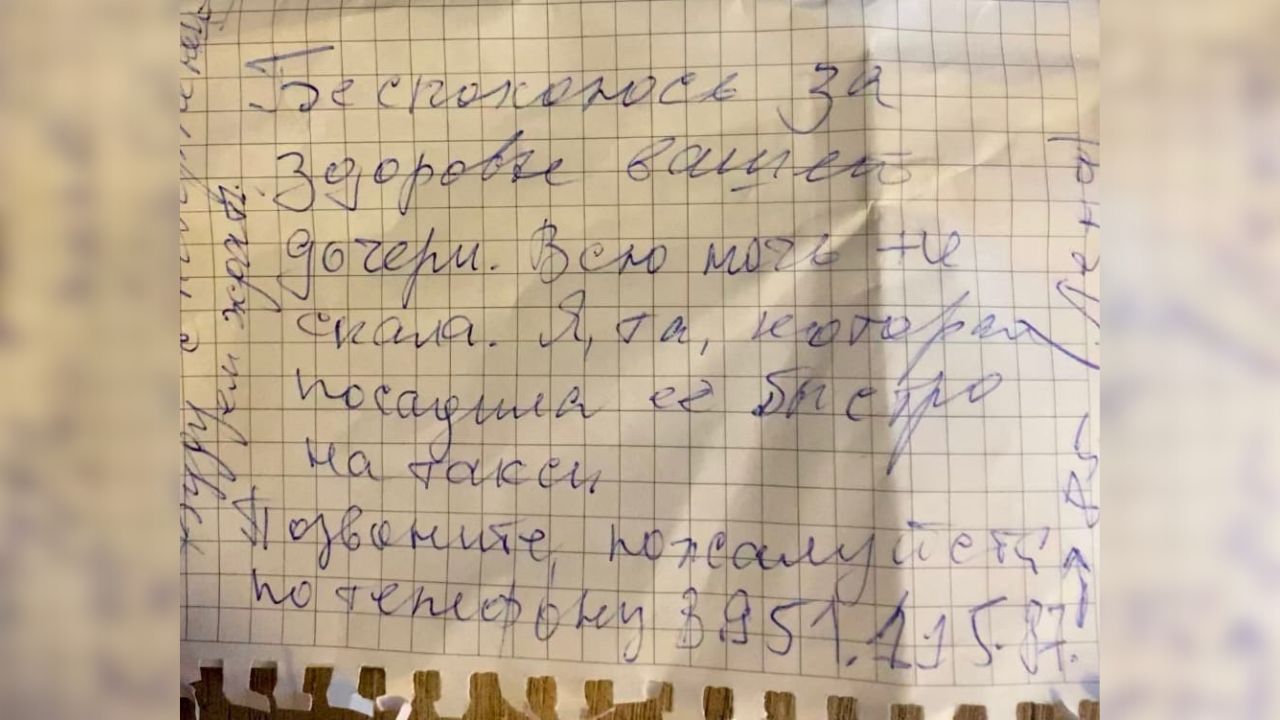 Беспокоюсь за
здоровье вашей
дочери. Всю ночь не
спала. Я, та, которая
посадила её быстро
на такси
Позвоните, пожалуйста,
по телефону 8951.115.87.
Лена)
ем ждать.